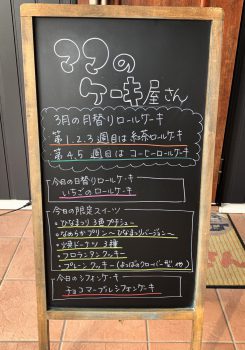 ママの
ケーキ屋さん
3月の月替りロールケーキ
第1.2.3週目は紅茶ロールケーキ
第4.5週目はコーヒーロールケーキ
今日の日替りロールケーキ
いちごのロールケーキ
今日の限定スイーツ
・ひなまつり3色プチシュー
・なめらかプリン～ひなまつりバージョン～
・焼ドーナツ 3種
・フロランタンクッキー
・プレーンクッキー(よつばのクローバー型 他)
今日のシフォンケーキ
チョコマーブルシフォンケーキ